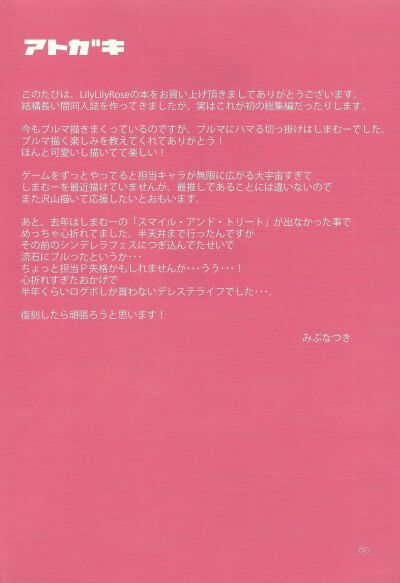 アトガキ
このたびは、LilyLilyRoseの本をお買い上げ頂きましてありがとうございます。
結構長い間同人誌を作ってきましたが、実はこれが初の総集編だったりします。
今もブルマ描きまくっているのですが、ブルマにハマる切っ掛けはしまむーでした。
ブルマ描く楽しみを教えてくれてありがとう！
ほんと可愛いし描いてて楽しい！
ゲームをずっとやってると担当キャラが無限に広がる大宇宙すぎて
しまむーを最近描けていませんが、最推しであることには違いないので
また沢山描いて応援したいとおもいます。
あと、去年はしまむーの「スマイル・アンド・トリート」が出なかった事で
めっちゃ心折れてました。半天井まで行ったんですが
その前のシンデレラフェスにつぎ込んでたせいで
流石にブルったというか･･･
ちょっと担当Ｐ失格かもしれませんが･･･うう･･･！
心折れすぎたおかげで
半年くらいログボしか貰わないデレステライフでした･･･。
復刻したら頑張ろうと思います！
みぶなつき
80